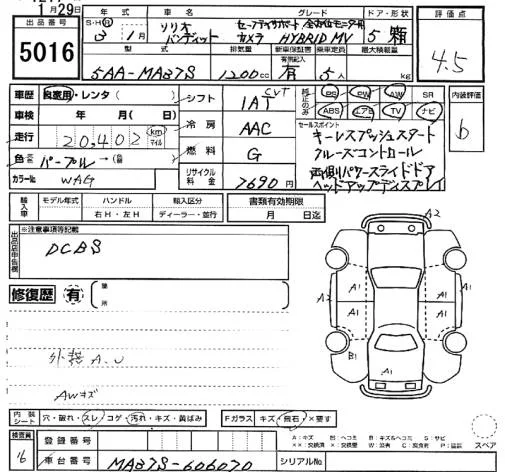 1月29日
出品番号
5016
年式
車名
グレード
ドア・形状
S・H・R
3 1月
ソリオ
バンディット
カメラ HYBRID MV
5 箱
型式
排気量
新車保証書
有
乗車定員
最大積載量
5AA-MA37S
1200cc
5人
kg
評価点
4.5
車歴
自家用・レンタ( )
シフト
CVT
1AT
純正のみ
PS PW AW SR
ABS エアB TV ナビ
内装評価
b
車検
年 月( 日)
走行
20,402 km マイル
冷房
AAC
セールスポイント
キーレスプッシュスタート
クルーズコントロール
両側パワースライドドア
ヘッドアップディスプレイ
色
パープル
燃料
G
カラーNo.
WAG
リサイクル料金
7690円
輸入車
モデル年式
ハンドル
右H・左H
輸入区分
ディーラー・並行
書類有効期限
月 日迄
出品店申告欄
※注意事項等記載
DCBS
修復歴 有
箇所
外装 A.U
AWキズ
A2
A1
A1
A1
A1
B1
A1
内装シート
穴・破れ・スレ・コゲ・汚れ・キズ・黄ばみ
Fガラス
キズ・飛石・×要す
A:キズ B:ヘコミ
スペア
検査員
16
登録番号
車台番号
MA37S-606070
シリアルNo.